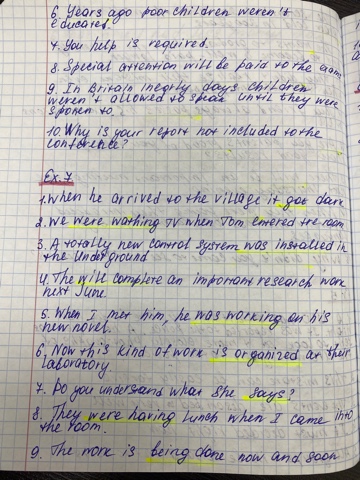 6. Years ago poor children weren't
educated.
7. You help is required.
8. Special attention will be paid to the
9. In Britain in early days children
weren't allowed to speak until they were
spoken to.
10. Why is your report not included to the
conference?
Ex. 7
1. When he arrived to the village it got dark
2. We were wathing TV when Tom entered the room
3. A totally new control system was installed in
the underground
4. The will complete an important research work
next June.
5. When I met him, he was working on his
new novel.
6. Now this kind of work is organized at their
laboratory
7. Do you understand what she says?
8. They were having lunch when I came into
the room.
9. The work is being done now and soon